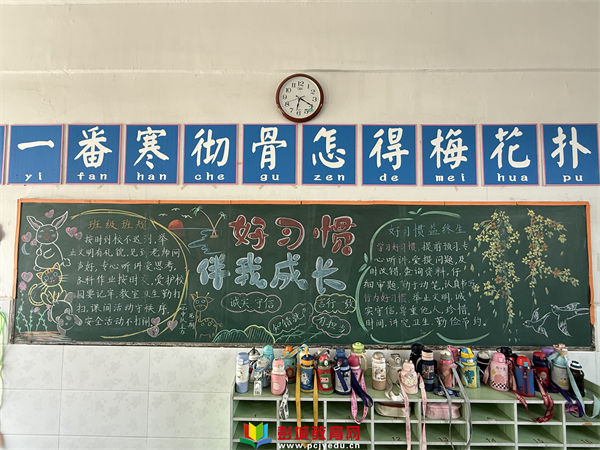 一番寒彻骨怎得梅花扑
yi fan han che gu zen de mei hua pu
好习惯
伴我成长
班级班规
按时到校不迟到,举
止文明有礼貌,见到老师问
声好,专心听讲爱思考,
各科作业按时交,爱护校
园要记牢,教室卫生勤打
扫,课间活动守秩序,
安全活动不打闹
诚实守信
言行一致
知错就改
好习惯益终生
学习好习惯:提前预习,专
心听讲,爱提问题,及
时改错,查阅资料,仔
细审题,勤于动笔,认真书写
行为好习惯:举止文明,诚
实守信,尊重他人,珍惜
时间,讲究卫生,勤俭节约。
荆城教育网
www.pcjyedu.cn